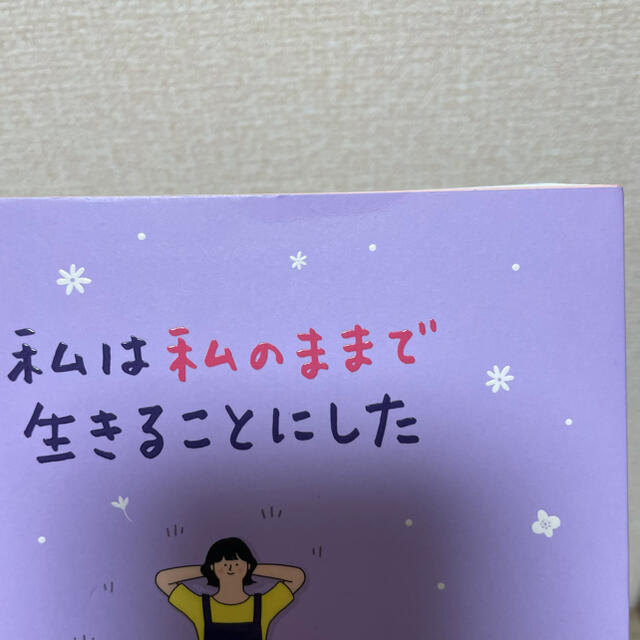 私は私のままで
生きることにした